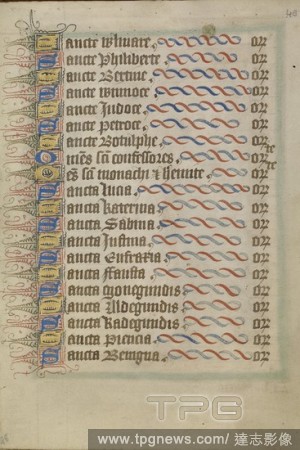 48
Sancte wlmare. or
Sancte Philiberte. or
Sancte Bertine. or
Sancte winnoce. or
Sancte Judoce. or
Sancte Petroce. or
Sancte Botulphe. or
Omēs sci confessores. orte
Oēs sci monachi ⁊ herīte orte
Sancta Lucia. or
Sancta Katerina. or
Sancta Sabina. or
Sancta Justina. or
Sancta Eufraxia. or
Sancta ffausta. or
Sancta or
Sancta Aldegundis or
Sancta Radegundis or
Sancta Piencia. or
Sancta Benigna. or
TPG
www.tpgnews.com / 達志影像